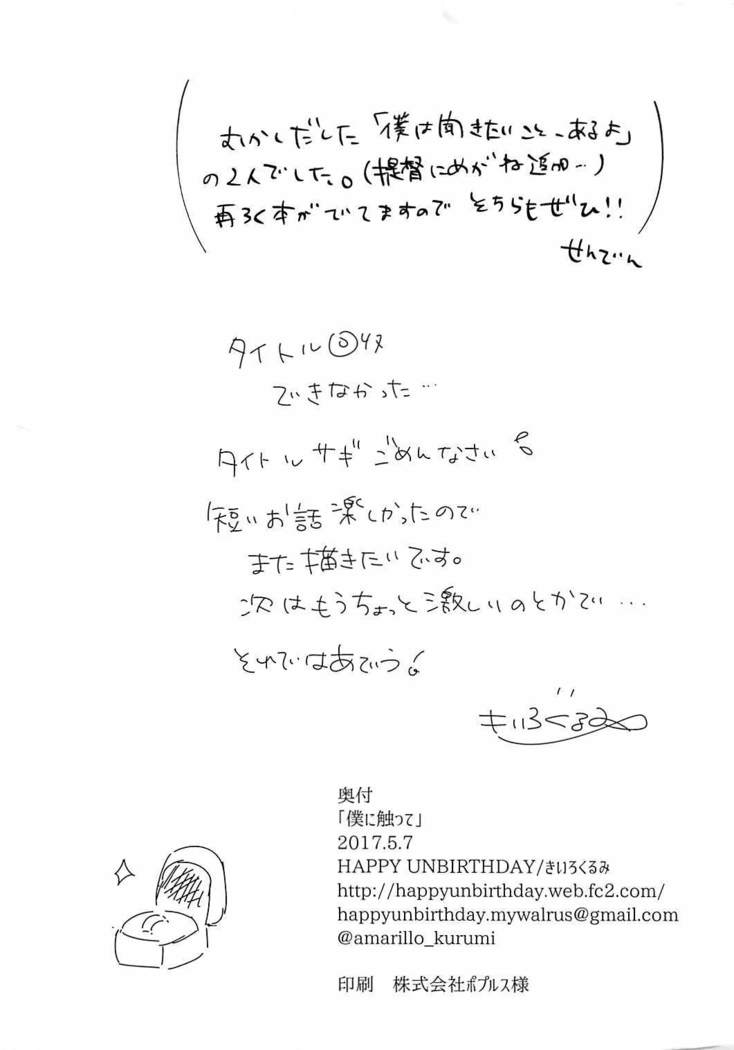 むかしだした「僕は聞きたいこと、あるよ」
の2人でした。(提督にめがね追加…)
再ろく本がでてますので そちらもぜひ!!
せんでん
タイトル
できなかった…
タイトルサギ ごめんなさい
短いお話楽しかったので
また描きたいです。
次はもうちょっと激しいのとかで…
それではあでゅう!
きいろくるみ
奥付
「僕に触って」
2017.5.7
HAPPY UNBIRTHDAY/きいろくるみ
http://happyunbirthday.web.fc2.com/
happyunbirthday.mywalrus@gmail.com
@amarillo_kurumi
印刷　株式会社ポプルス様